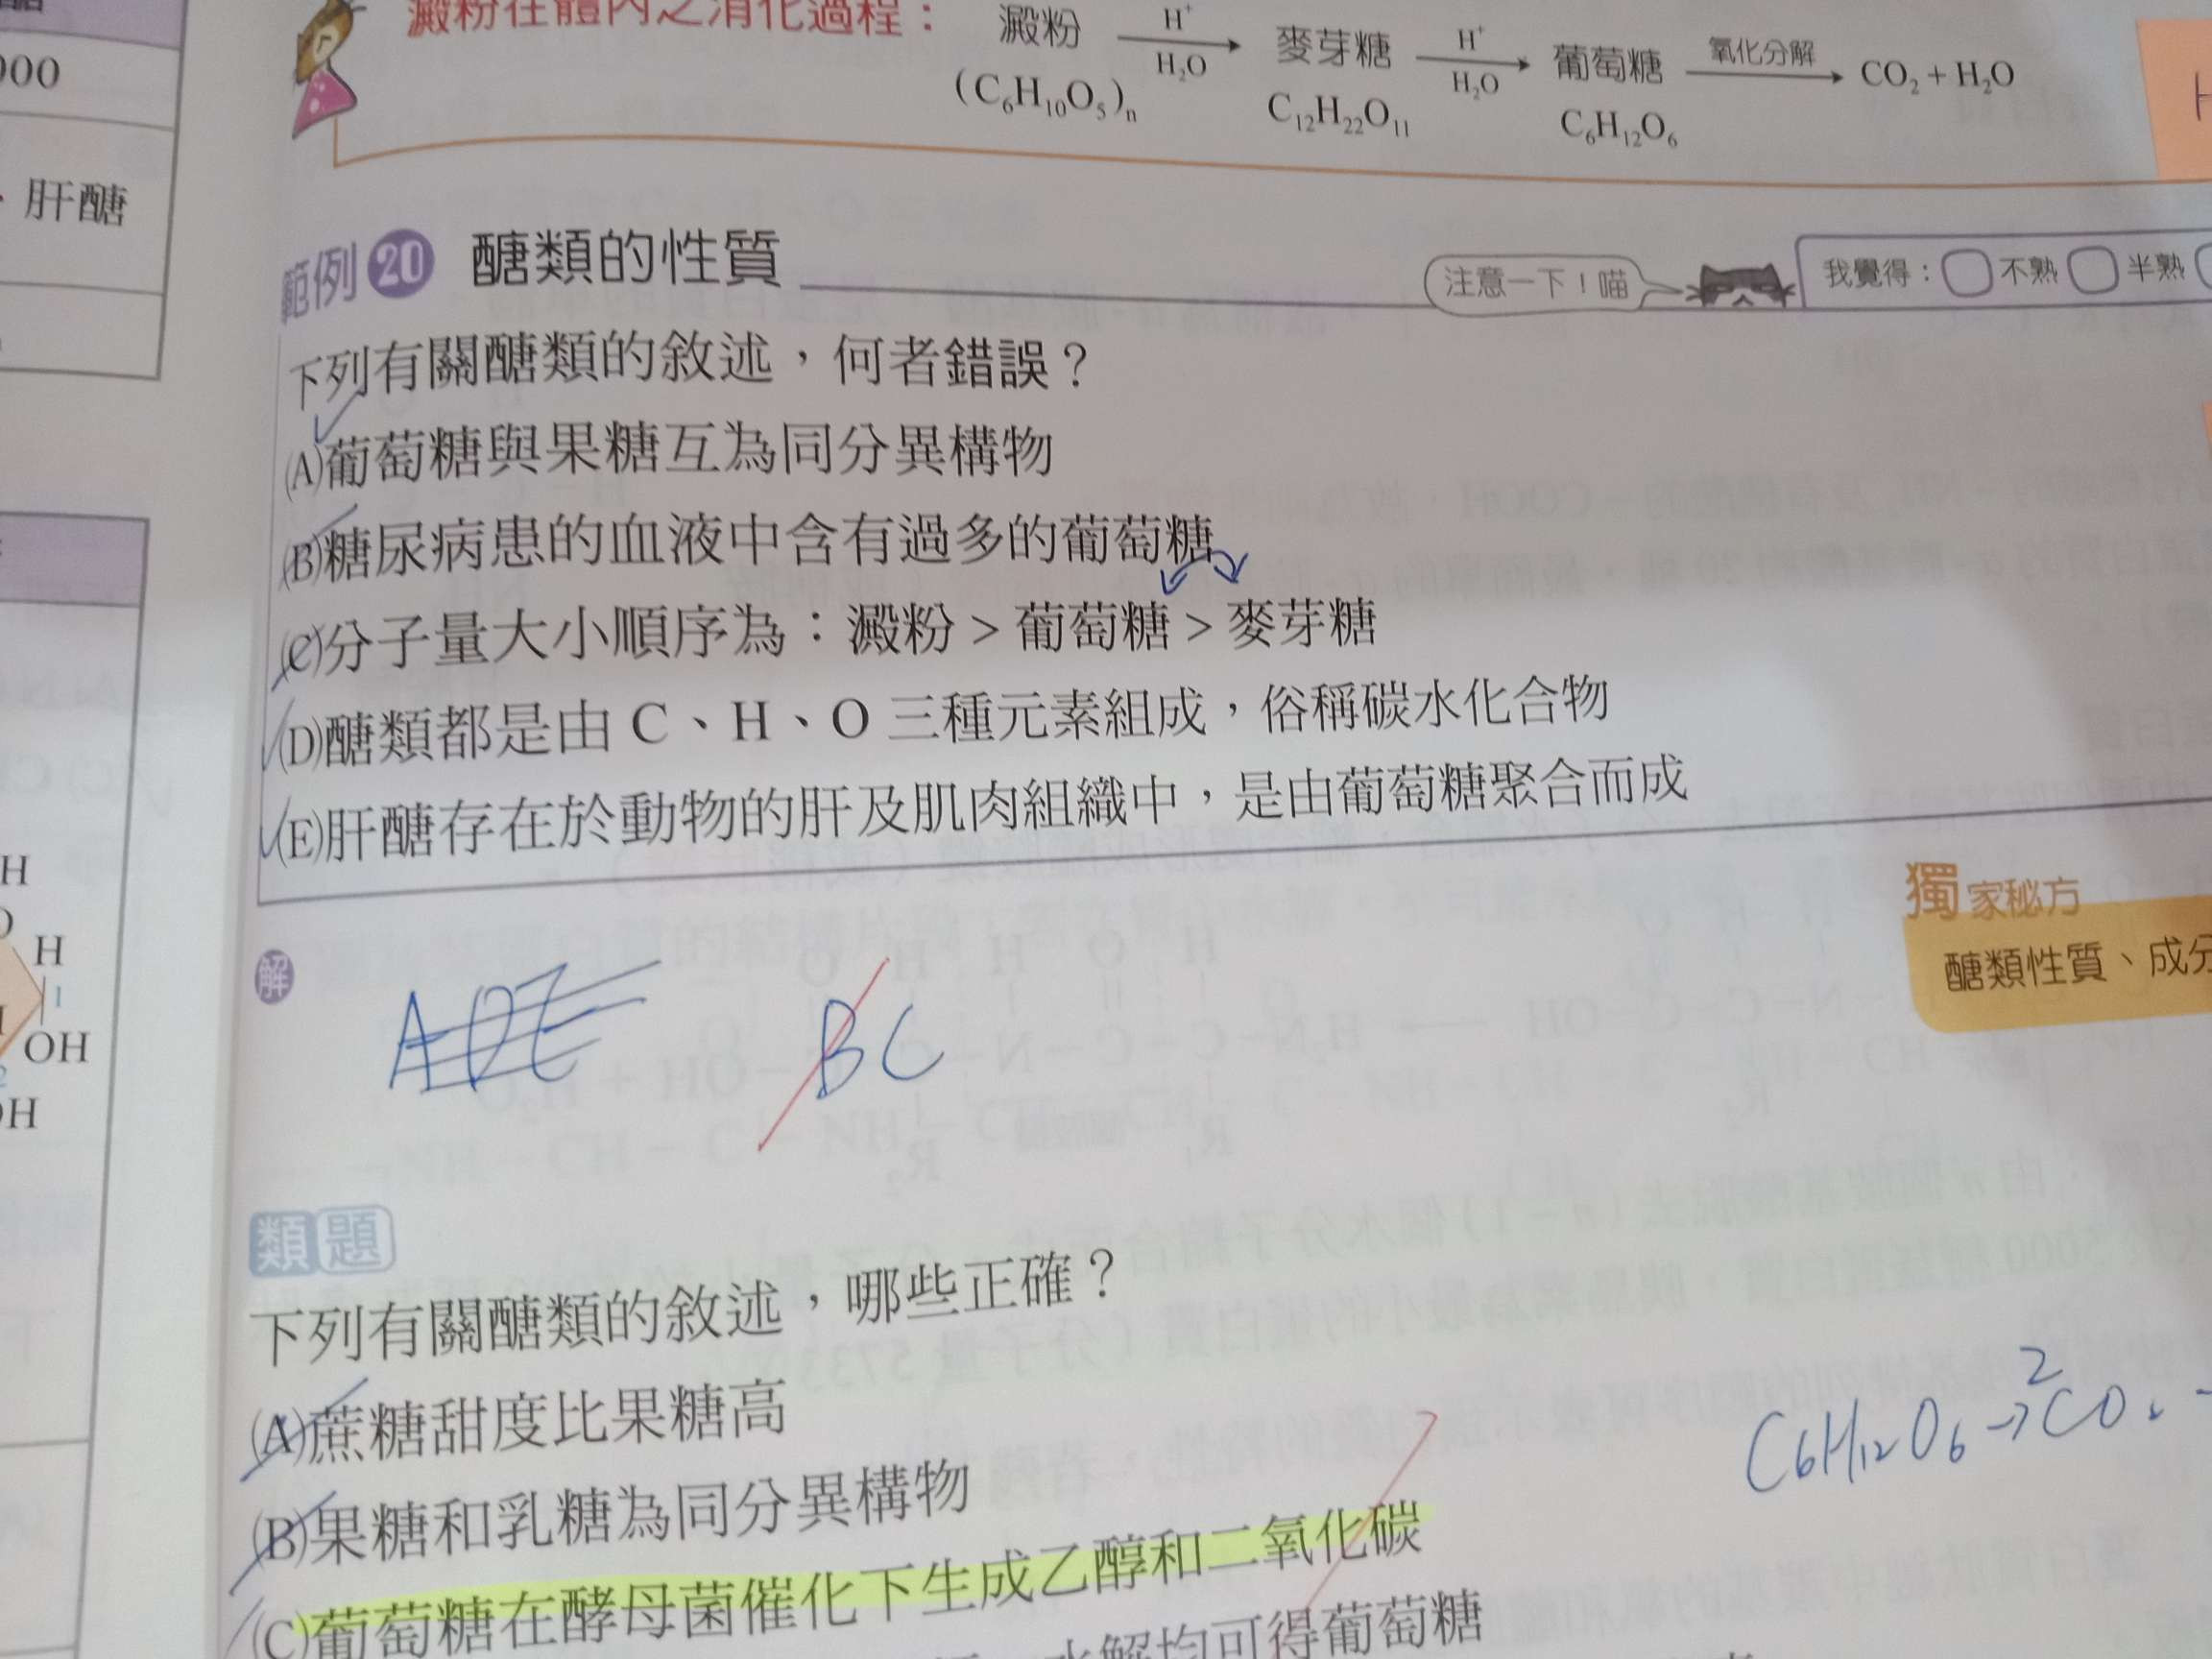 澱粉在體內之消化過程：
澱粉 H⁺ H₂O 麥芽糖 H⁺ H₂O 葡萄糖 氧化分解 CO₂ + H₂O
(C₆H₁₀O₅)ₙ C₁₂H₂₂O₁₁ C₆H₁₂O₆
肝醣
範例 20 醣類的性質
注意一下！喵 我覺得： 不熟 半熟
下列有關醣類的敘述，何者錯誤？
(A)葡萄糖與果糖互為同分異構物
(B)糖尿病患的血液中含有過多的葡萄糖
(C)分子量大小順序為：澱粉 > 葡萄糖 > 麥芽糖
(D)醣類都是由 C、H、O 三種元素組成，俗稱碳水化合物
(E)肝醣存在於動物的肝及肌肉組織中，是由葡萄糖聚合而成
獨家秘方
醣類性質、成分
H
H
1
OH
解
ADE BC
類題
下列有關醣類的敘述，哪些正確？
(A)蔗糖甜度比果糖高
(B)果糖和乳糖為同分異構物
C₆H₁₂O₆→2CO₂
(C)葡萄糖在酵母菌催化下生成乙醇和二氧化碳
水解均可得葡萄糖